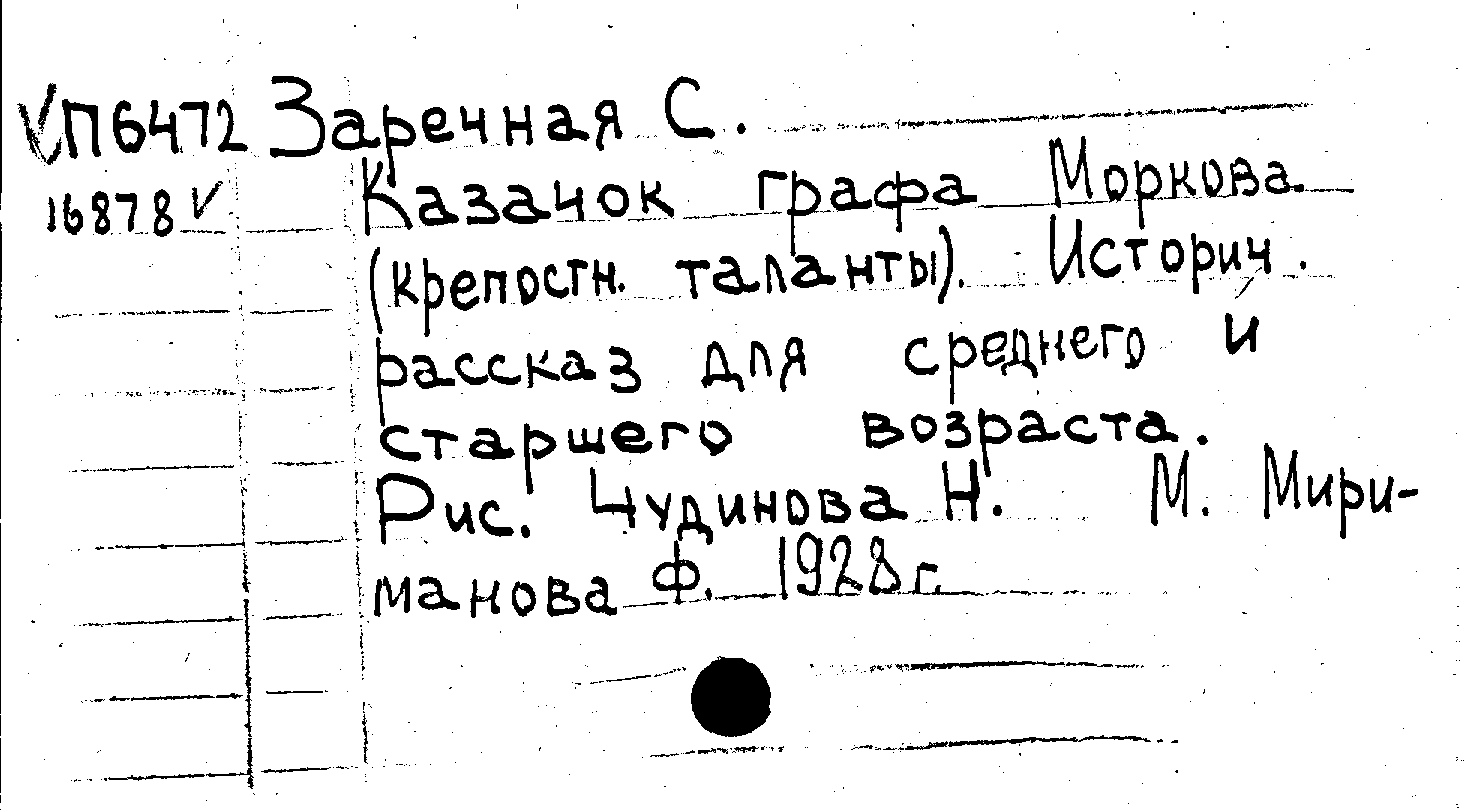 √П6472 Заречная С.
16878 √ Казачок графа Моркова.
(крепостн. таланты). Историч.
рассказ для среднего и
старшего возраста.
Рис. Чудинова Н. М. Мири-
манова Ф. 1928 г.